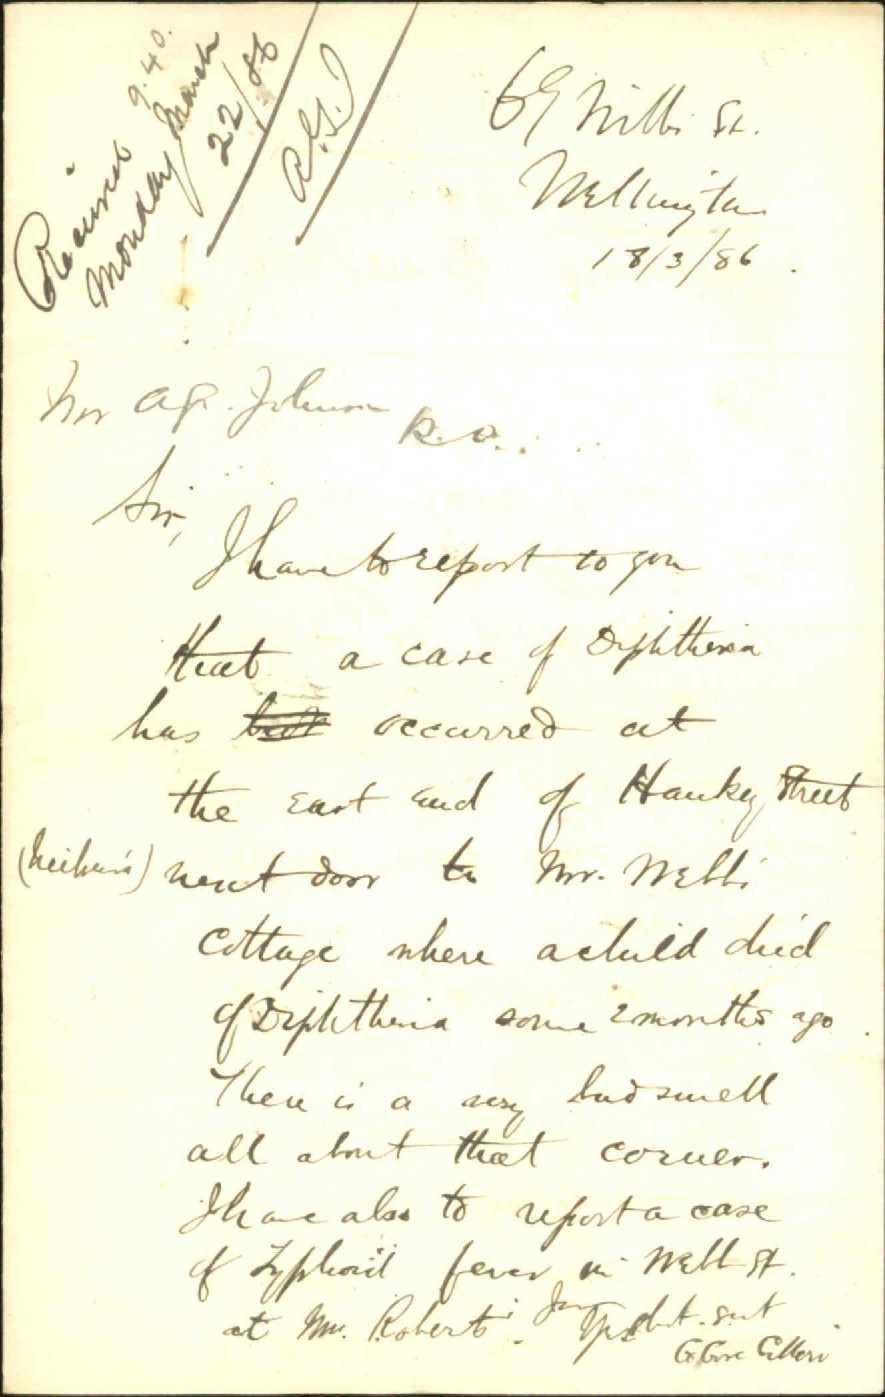 Received 9.40.
Monday March
22/86
69 Willis St.
Wellington
18/3/86.
Mr A.G. Johnson
Sir,
I have to report to you
that a case of Diphtheria
has occurred at
the East end of Hankey Street
next door to Mr. Webb's
Cottage where a child died
of Diphtheria some 2 months ago
There is a very bad smell
all about that corner.
I have also to report a case
of Typhoid fever in Webb St.
at Mr. Roberts'.
Your obdt. svt
G Gore Gillon